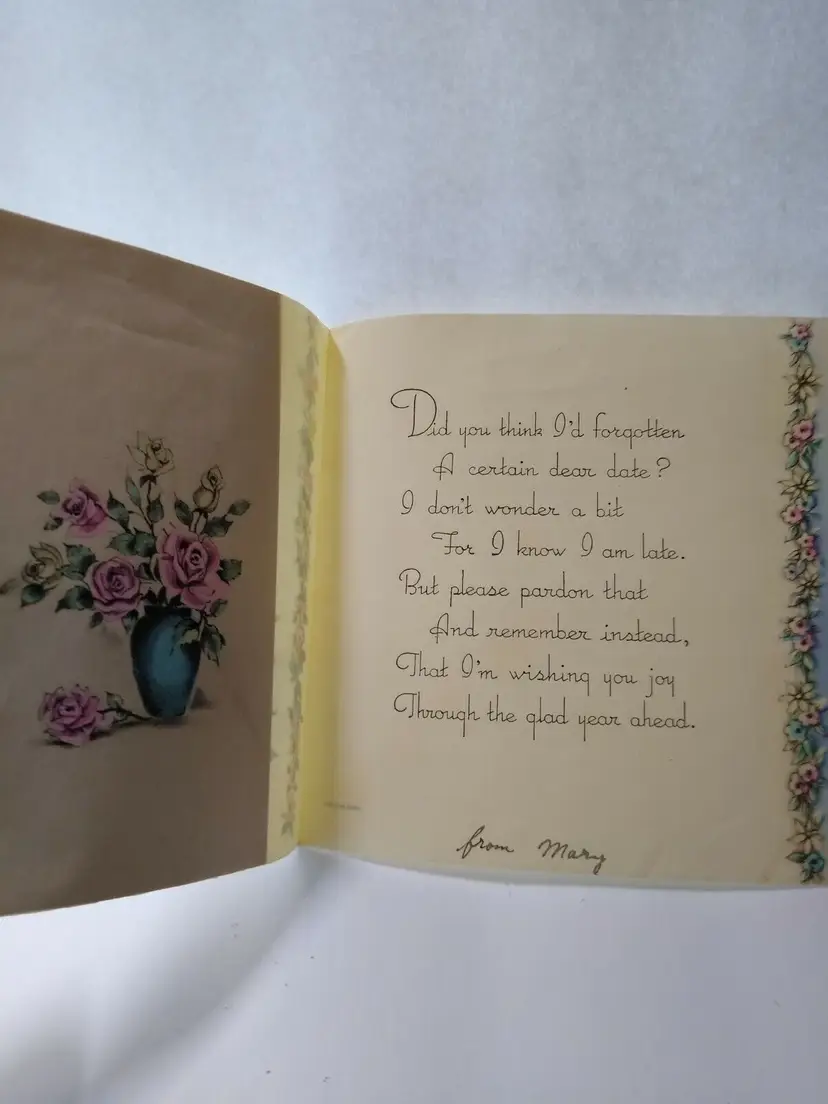 Did you think I'd forgotten
A certain dear date?
I don't wonder a bit
For I know I am late.
But please pardon that
And remember instead,
That I'm wishing you joy
Through the glad year ahead.
from Mary